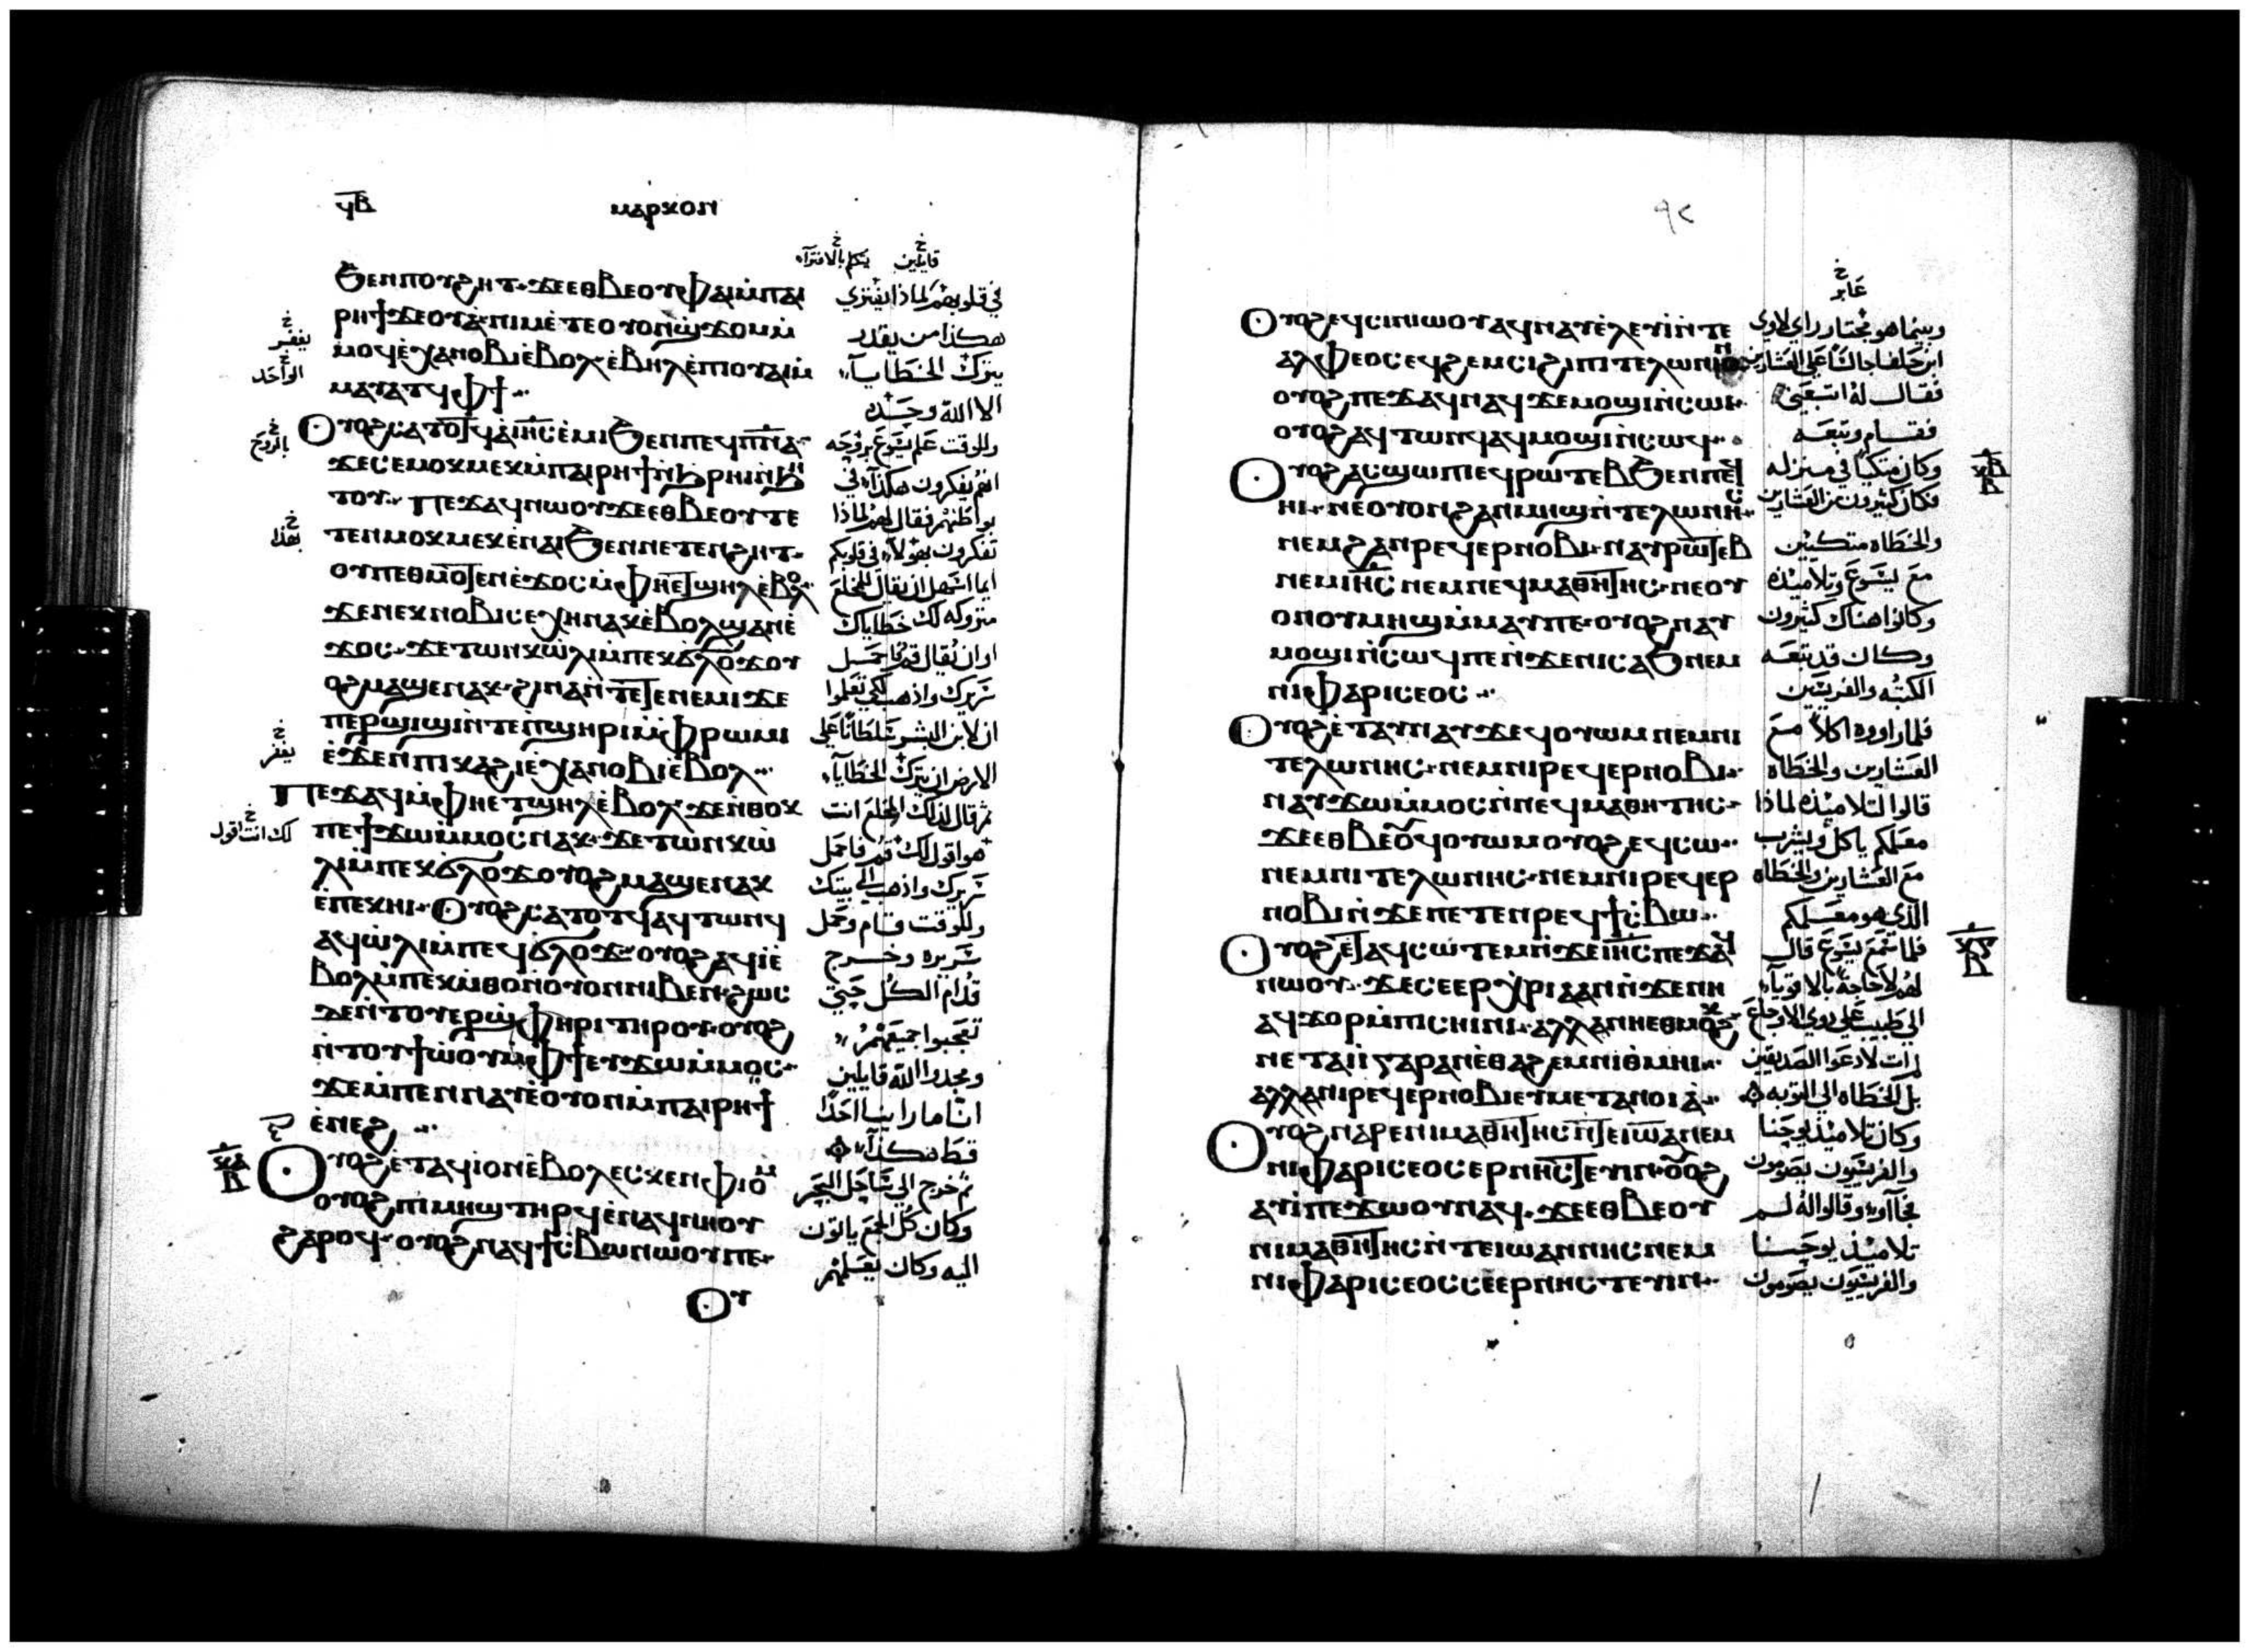 ϥⲃ
ⲙⲁⲣⲕⲟⲛ
ϧⲉⲛⲡⲟⲩϩⲏⲧ ϫⲉⲉⲑⲃⲉⲟⲩ ⲫⲁⲓⲙ̀ⲡⲁⲓ
ⲣⲏϯϫⲉⲟⲩⲁ̀ ⲛⲓⲙⲉ̀ⲧⲉⲟⲩⲟⲛϣ̀ϫⲟⲙⲙ̀
ⲙⲟϥⲉ̀ⲭⲁⲛⲟⲃⲓⲉ̀ⲃⲟⲗ ⲉ̀ⲃⲏⲗⲉ̀ⲡⲓⲟⲩⲁⲓⲙ̀
ⲙⲁⲩⲁⲧϥⲫϯ
ⲟⲩⲟϩⲥⲁⲧⲟⲧϥⲁ̀ⲓⲏⲥⲉ̀ⲙⲓϧⲉⲛⲡⲉϥⲡⲛⲁ
ϫⲉⲥⲉⲙⲟⲕⲙⲉⲕⲙ̀ⲡⲁⲓⲣⲏϯⲛ̀ϧⲣⲏⲓⲛ̀ϧⲏ
ⲧⲟⲩ ⲡⲉϫⲁϥⲛⲱⲟⲩϫⲉⲉⲑⲃⲉⲟⲩⲧⲉ
ⲧⲉⲛⲙⲟⲕⲙⲉⲕⲉ̀ⲛⲁⲓϧⲉⲛⲛⲉⲧⲉⲛϩⲏⲧ
ⲟⲩⲡⲉⲑⲙⲟⲧⲉⲛⲉ̀ϫⲟⲥⲙ̀ⲫⲏⲉⲧϣⲏⲗⲉ̀ⲃⲟⲗ
ϫⲉⲛⲉⲕⲛⲟⲃⲓⲥⲉⲭⲏⲛⲁⲕⲉ̀ⲃⲟⲗϣⲁⲛⲉ̀
ϫⲟⲥ ϫⲉⲧⲱⲛⲕⲱ̀ⲗⲓⲙ̀ⲡⲉⲕϭ̀ⲗⲟϫⲟⲩ
ⲟϩⲙⲁϣⲉⲛⲁⲕ ϩⲓⲛⲁⲛ̀ⲧⲉⲧⲉⲛⲉⲙⲓϫⲉ
ⲡⲉⲣϣⲓϣⲓⲛ̀ⲧⲉⲡ̀ϣⲏⲣⲓⲙ̀ⲫⲣⲱⲙⲓ
ⲉ̀ϫⲉⲛⲡⲓⲕⲁϩⲓⲉ̀ⲭⲁⲛⲟⲃⲓⲉ̀ⲃⲟⲗ
ⲡⲉϫⲁϥⲙ̀ⲫⲏⲉⲧϣⲏⲗⲉ̀ⲃⲟⲗ ϫⲉⲛ̀ⲑⲟⲕ
ⲡⲉϯϫⲱⲙ̀ⲙⲟⲥⲛⲁⲕ ϫⲉⲧⲱⲛⲕⲱ̀
ⲗⲓⲙ̀ⲡⲉⲕϭ̀ⲗⲟϫⲟⲩⲟϩⲙⲁϣⲉⲛⲁⲕ
ⲉ̀ⲡⲉⲕⲏⲓ ⲟⲩⲟϩⲥⲁⲧⲟⲧϥⲁϥⲧⲱⲛϥ
ⲁϥⲱ̀ⲗⲓⲙ̀ⲡⲉϥϭ̀ⲗⲟϫ ⲟⲩⲟϩⲁϥⲓⲉ̀
ⲃⲟⲗⲙ̀ⲡⲉⲕⲙ̀ⲑⲟⲛ̀ⲟⲩⲟⲛⲛⲓⲃⲉⲛ ϩⲱⲥ
ϫⲉⲛ̀ⲧⲟⲩⲉⲣϣ̀ⲫⲏⲣⲓⲧⲏⲣⲟⲩ ⲟⲩⲟϩ
ⲛ̀ⲧⲟⲩϯⲱ̀ⲟⲩⲙ̀ⲫϯⲉⲩϫⲱⲙ̀ⲙⲟⲥ
ϫⲉⲙ̀ⲡⲉⲛⲛⲁⲩⲉ̀ⲟⲩⲟⲛⲙ̀ⲡⲁⲓⲣⲏϯ
ⲉ̀ⲛⲉϩ
ⲟⲩⲟϩⲉ̀ⲧⲁϥⲓⲟⲛⲉ̀ⲃⲟⲗⲉⲥⲕⲉⲛⲫⲓⲟⲙ
ⲟⲩⲟϩⲡⲓⲙⲏϣⲧⲏⲣϥⲉ̀ⲛⲁϥⲛⲏⲟⲩ
ϩⲁⲣⲟϥ ⲟⲩⲟϩⲛⲁϥϯⲥ̀ⲃⲱⲛⲱⲟⲩⲡⲉ
ⲟⲩ
قايلين يتكلم بالافتراء
في قلوبهم لماذا يفتري
هكذا من يقدر
يترك الخطايا
الا الله وحده
وللوقت علم يسوع بروحه
انهم يفكرون هكذا في
بواطنهم فقال لهم لماذا
تفكرون بهولاء في قلوبكم
ايما اسهل ان يقال للمخلع
متروكه لك خطاياك
او ان يقال قم احمل
سريرك واذهب لكي تعلموا
ان لابن البشر سلطانا علي
الارض ان يترك الخطايا
ثم قال لذلك المخلع انت
هو اقول لك قم فاحمل
سريرك واذهب الي بيتك
وللوقت قام وحمل
سريره وخرج
قدام الكل حتي
تعجبوا جميعهم
ومجدوا الله قايلين
انا ما راينا احدا
قط هكذا
ثم خرج الي ساحل البحر
وكان كل الجمع ياتون
اليه وكان يعلمهم
يغفر
الواحد
بالروح
بهذا
يغفر
لك انت اقول
ⲕⲁ
ⲃ
٩٢
ⲟⲩⲟϩⲉϥⲥⲓⲛⲓⲱⲟⲩⲁϥⲛⲁⲩⲉ̀ⲗⲉⲩⲓⲛ̀ⲧⲉ
ⲁⲗⲫⲉⲟⲥⲉϥϩⲉⲙⲥⲓϩⲓⲡⲓⲧⲉⲗⲱⲛⲓⲟⲛ
ⲟⲩⲟϩⲡⲉϫⲁϥⲛⲁϥϫⲉⲙⲟϣⲓⲛ̀ⲥⲱⲓ
ⲟⲩⲟϩⲁϥⲧⲱⲛϥⲁϥⲙⲟϣⲓⲛ̀ⲥⲱϥ
ⲟⲩⲟϩⲁⲥϣⲱⲡⲓⲉϥⲣⲱ̀ⲧⲉⲃϧⲉⲛⲡⲉϥ
ⲏⲓ ⲛⲉⲟⲩⲟⲛϩⲁⲛⲙⲏϣⲛ̀ⲧⲉⲗⲱⲛⲏⲥ
ⲛⲉⲙϩⲁⲛⲣⲉϥⲉⲣⲛⲟⲃⲓ ⲛⲁⲩⲣⲱⲧⲉⲃ
ⲛⲉⲙⲓⲏⲥ ⲛⲉⲙⲛⲉϥⲙⲁⲑⲏⲧⲏⲥ ⲛⲉⲟⲩ
ⲟⲛⲟⲩⲙⲏϣⲙ̀ⲙⲁⲩⲡⲉ ⲟⲩⲟϩⲛⲁⲩ
ⲙⲟϣⲓⲛ̀ⲥⲱϥⲡⲉⲛ̀ϫⲉⲛⲓⲥⲁϧⲛⲉⲙ
ⲛⲓⲫⲁⲣⲓⲥⲉⲟⲥ
ⲟⲩⲟϩⲉ̀ⲧⲁⲩⲛⲁⲩϫⲉϥⲟⲩⲱⲙⲛⲉⲙⲛⲓ
ⲧⲉⲗⲱⲛⲏⲥ ⲛⲉⲙⲛⲓⲣⲉϥⲉⲣⲛⲟⲃⲓ
ⲛⲁⲩϫⲱⲙ̀ⲙⲟⲥⲛ̀ⲛⲉϥⲙⲁⲑⲏⲧⲏⲥ
ϫⲉⲉⲑⲃⲉⲟⲩϥⲟⲩⲱⲙⲟⲩⲟϩⲉϥⲥⲱ
ⲛⲉⲙⲛⲓⲧⲉⲗⲱⲛⲏⲥ ⲛⲉⲙⲛⲓⲣⲉϥⲉⲣ
ⲛⲟⲃⲓⲛ̀ϫⲉⲡⲉⲧⲉⲛⲣⲉϥϯⲥ̀ⲃⲱ
ⲟⲩⲟϩⲉ̀ⲧⲁϥⲥⲱⲧⲉⲙⲛ̀ϫⲉⲓⲏⲥⲡⲉϫⲁϥ
ⲛⲱⲟⲩ ϫⲉⲥⲉⲉⲣⲭ̀ⲣⲓⲁⲁⲛⲛ̀ϫⲉⲛⲏ
ⲉⲧϫⲟⲣⲙ̀ⲡⲓⲥⲏⲓⲛⲓ ⲁⲗⲗⲁⲛⲏⲉⲑⲙⲟⲕϩ
ⲛⲉⲧⲁⲓⲓ̀ⲅⲁⲣⲁⲛⲉ̀ⲑⲁϩⲉⲙⲛⲓⲑⲙⲏⲓ
ⲁⲗⲗⲁⲛⲓⲣⲉϥⲉⲣⲛⲟⲃⲓⲉⲩⲙⲉⲧⲁⲛⲟⲓⲁ̀
ⲟⲩⲟϩⲛⲁⲣⲉⲛⲓⲙⲁⲑⲏⲧⲏⲥⲛ̀ⲧⲉⲓⲱⲁⲛⲉⲙ
ⲛⲓⲫⲁⲣⲓⲥⲉⲟⲥⲉⲣⲛⲏⲥⲧⲉⲩⲓⲛ ⲟⲩⲟϩ
ⲁⲩⲓ̀ⲡⲉϫⲱⲟⲩⲛⲁϥ ϫⲉⲉⲑⲃⲉⲟⲩ
ⲛⲓⲙⲁⲑⲏⲧⲏⲥⲛ̀ⲧⲉⲓⲱⲁⲛⲛⲏⲥⲛⲉⲙ
ⲛⲓⲫⲁⲣⲓⲥⲉⲟⲥⲥⲉⲉⲣⲛⲏⲥⲧⲉⲩⲓⲛ
عابر
وبينما هو مجتاز راي لاوي
ابن حلفا جالسا علي العشارين
فقال له اتبعني
فقام وتبعه
وكان متكيا في منزله
فكان كثيرون من العشارين
والخطاه متكيين
مع يسوع وتلاميذه
وكانوا هناك كثيرون
وكان قد تبعه
الكتبه والفريسيين
فلما راووه اكلا مع
العشارين والخطاه
قالوا لتلاميذه لماذا
معلمكم ياكل ويشرب
مع العشارين والخطاه
الذي هو معلمكم
فلما سمع يسوع قال
لهم لا حاجة بالاقوياء
الي طبيب بل ذوي الاوجاع
لم ات لادعوا الصديقين
بل الخطاه الي التوبه
وكان تلاميذ يوحنا
والفريسيون يصومون
فجاآوا وقالوا له لم
تلاميذ يوحنا
والفريسيون يصومون
ⲕⲃ
ⲃ
ⲕⲅ
ⲃ